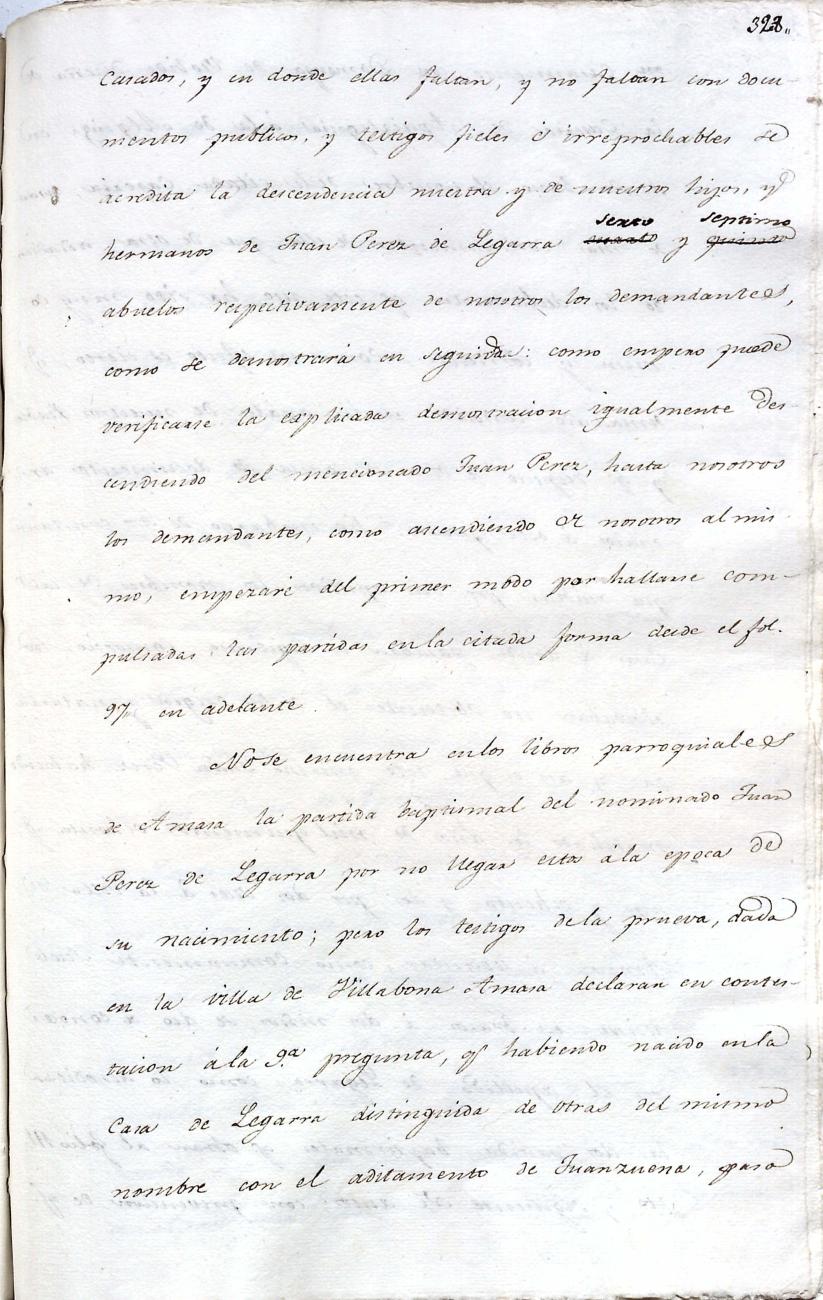 328.
casados, y en donde ellas faltan, y no faltan con docu-
mentos publicos, y testigos fieles é irreprochables se
acredita la descendencia nuestra y de nuestros hijos, y
sexto septimo
hermanos de Juan Perez de Legarra cuarto y quinto
abuelos respectivamente de nosotros los demandantes,
como se demostrará en seguida: como empero puede
verificarse la explicada demostracion igualmente des-
cendiendo del mencionado Juan Perez, hasta nosotros
los demandantes, como ascendiendo de nosotros al mis-
mo, empezaré del primer modo por hallarse com-
pulsadas las partidas en la citada forma desde el fol.
97, en adelante.
No se encuentra en los libros parroquiales
de Amasa la partida baptismal del nominado Juan
Perez de Legarra por no llegar estos á la epoca de
su nacimiento; pero los testigos de la prueva, dada
en la villa de Villabona Amasa declaran en contes-
tacion á la 9.ª pregunta, qe habiendo nacido en la
Casa de Legarra distinguida de otras del mismo
nombre con el aditamento de Juanzuena, paso